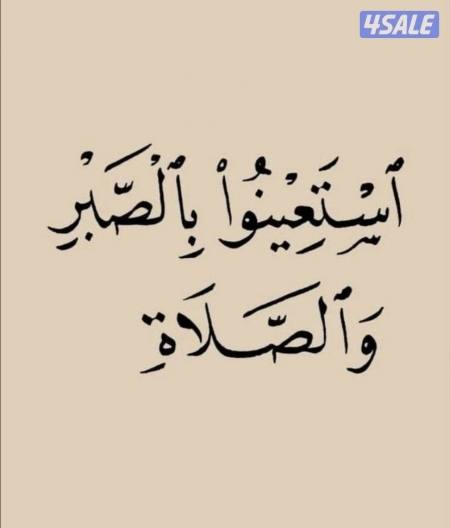 4SALE
ٱسْتَعِينُوا۟ بِٱلْصَّبْرِ
وَٱلصَّلَاةِ